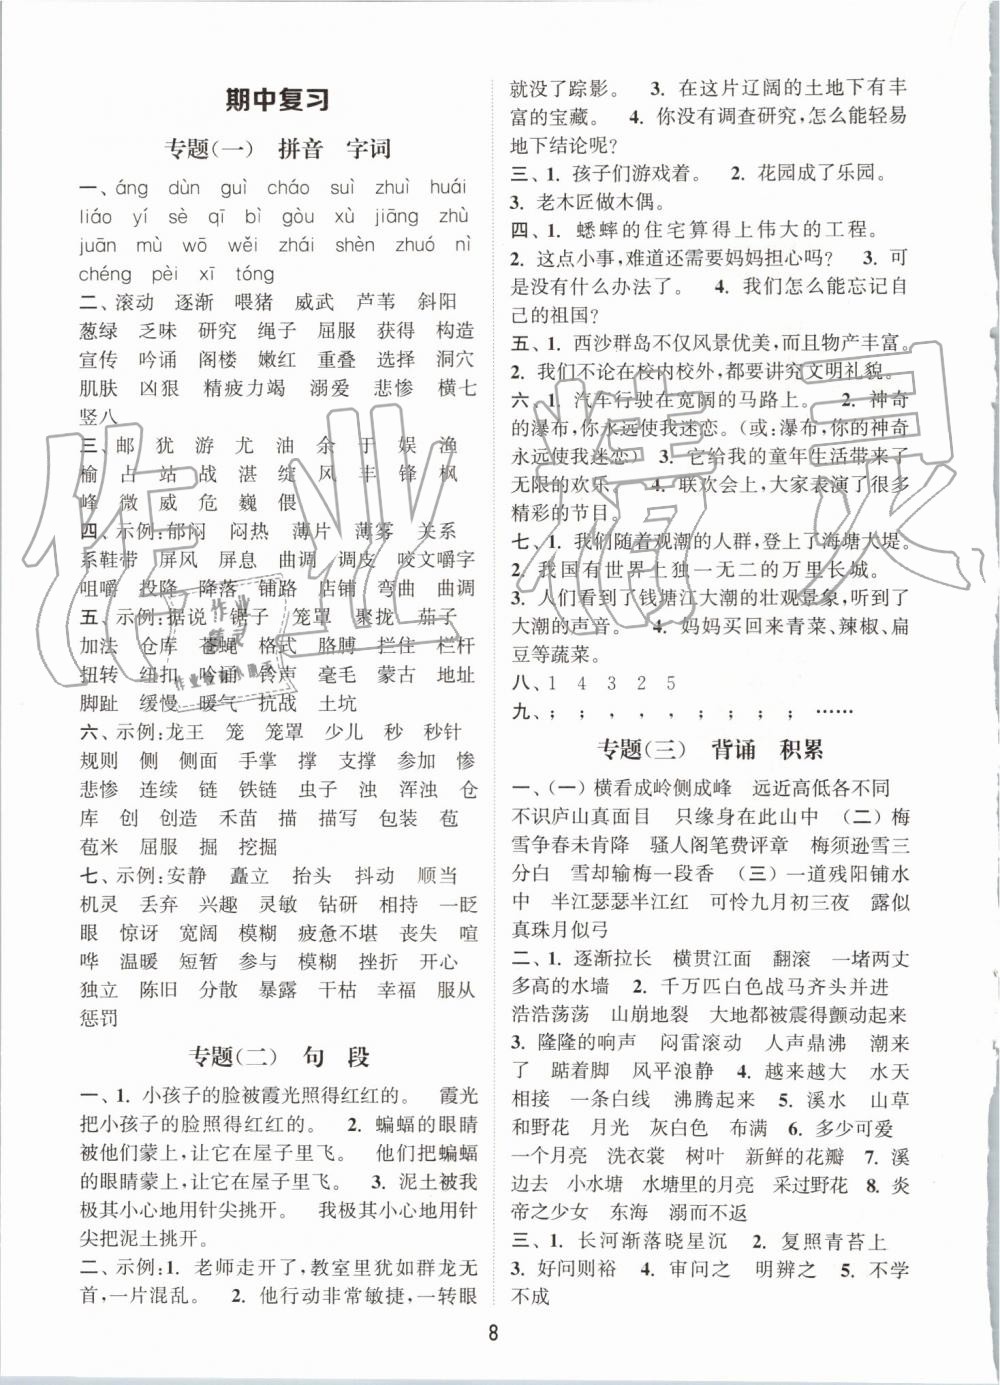 期中复习
专题(一) 拼音 字词
一、áng dùn guì cháo suì zhuì huái
liáo yí sè qī bì gòu xù jiāng zhù
juān mù wō wěi zhái shèn zhuó nì
chéng pèi xī tóng
二、滚动 逐渐 喂猪 威武 芦苇 斜阳
葱绿 乏味 研究 绳子 屈服 获得 构造
宣传 吟诵 阁楼 嫩红 重叠 选择 洞穴
肌肤 凶狠 精疲力竭 溺爱 悲惨 横七
竖八
三、邮 犹 游 尤 油 余 于 娱 渔
榆 占 站 战 湛 绽 风 丰 锋 枫
峰 微 威 危 巍 偎
四、示例:郁闷 闷热 薄片 薄雾 关系
系鞋带 屏风 屏息 曲调 调皮 咬文嚼字
咀嚼 投降 降落 铺路 店铺 弯曲 曲调
五、示例:据说 锯子 笼罩 聚拢 茄子
加法 仓库 苍蝇 格式 胳膊 拦住 栏杆
扭转 纽扣 吟诵 铃声 毫米 蒙古 地毯
脚趾 缓慢 暖气 抗战 土坑
六、示例:龙王 笼 笼罩 少儿 秒 秒针
规则 侧 侧面 手掌 撑 支撑 参加 惨
悲惨 连续 链 铁链 虫子 浊 浑浊 仓
库 创 创造 禾苗 描 描写 包装 苞
苞米 屈服 掘 挖掘
七、示例:安静 矗立 抬头 抖动 顺当
机灵 丢弃 兴趣 灵敏 钻研 相持 一眨
眼 惊讶 宽阔 模糊 疲惫不堪 丧失 喧
哗 温暖 短暂 参与 模糊 挫折 开心
独立 陈旧 分散 暴露 干枯 幸福 服从
惩罚
专题(二) 句 段
一、1. 小孩子的脸被霞光照得红红的。 霞光
把小孩子的脸照得红红的。 2. 蝙蝠的眼睛
被他们蒙上,让它在屋子里飞。 他们把蝙蝠
的眼睛蒙上,让它在屋子里飞。 3. 泥土被我
极其小心地用针尖挑开。 我极其小心地用针
尖把泥土挑开。
二、示例:1. 老师走开了,教室里犹如群龙无
首,一片混乱。 2. 他行动非常敏捷,一转眼
就没了踪影。 3. 在这片辽阔的土地下有丰
富的宝藏。 4. 你没有调查研究,怎么能轻易
地下结论呢?
三、1. 孩子们游戏着。 2. 花园成了乐园。
3. 老木匠做木偶。
四、1. 蟋蟀的住宅算得上伟大的工程。
2. 这点小事,难道还需要妈妈担心吗? 3. 可
是没有什么办法了。 4. 我们怎么能忘记自
己的祖国?
五、1. 西沙群岛不仅风景优美,而且物产丰富。
2. 我们不论在校内校外,都要讲究文明礼貌。
六、1. 汽车行驶在宽阔的马路上。 2. 神奇
的瀑布,你永远使我迷恋。(或:瀑布,你的神奇
永远使我迷恋) 3. 它给我的童年生活带来了
无限的欢乐。 4. 联欢会上,大家表演了很多
精彩的节目。
七、1. 我们随着观潮的人群,登上了海塘大堤。
2. 我国有世界上独一无二的万里长城。
3. 人们看到了钱塘江大潮的壮观景象,听到了
大潮的声音。 4. 妈妈买回来青菜、辣椒、扁
豆等蔬菜。
八、1 4 3 2 5
九、; ; , , ; ; ; ; ……
专题(三) 背诵 积累
一、(一)横看成岭侧成峰 远近高低各不同
不识庐山真面目 只缘身在此山中 (二)梅
雪争春未肯降 骚人阁笔费评章 梅须逊雪三
分白 雪却输梅一段香 (三)一道残阳铺水
中 半江瑟瑟半江红 可怜九月初三夜 露似
真珠月似弓
二、1. 逐渐拉长 横贯江面 翻滚 一堵两丈
多高的水墙 2. 千万匹白色战马齐头并进
浩浩荡荡 山崩地裂 大地都被震得颤动起来
3. 隆隆的响声 闷雷滚动 人声鼎沸 潮来
了 踮着脚 风平浪静 4. 越来越大 水天
相接 一条白线 沸腾起来 5. 溪水 山草
和野花 月光 灰白色 布满 6. 多可爱
一个月亮 洗衣裳 树叶 新鲜的花瓣 7. 溪
边去 小水塘 水塘里的月亮 采过野花 8. 炎
帝之少女 东海 溺而不返
三、1. 长河渐落晓星沉 2. 复照青苔上
3. 好问则裕 4. 审问之 明辨之 5. 不学
不成
8